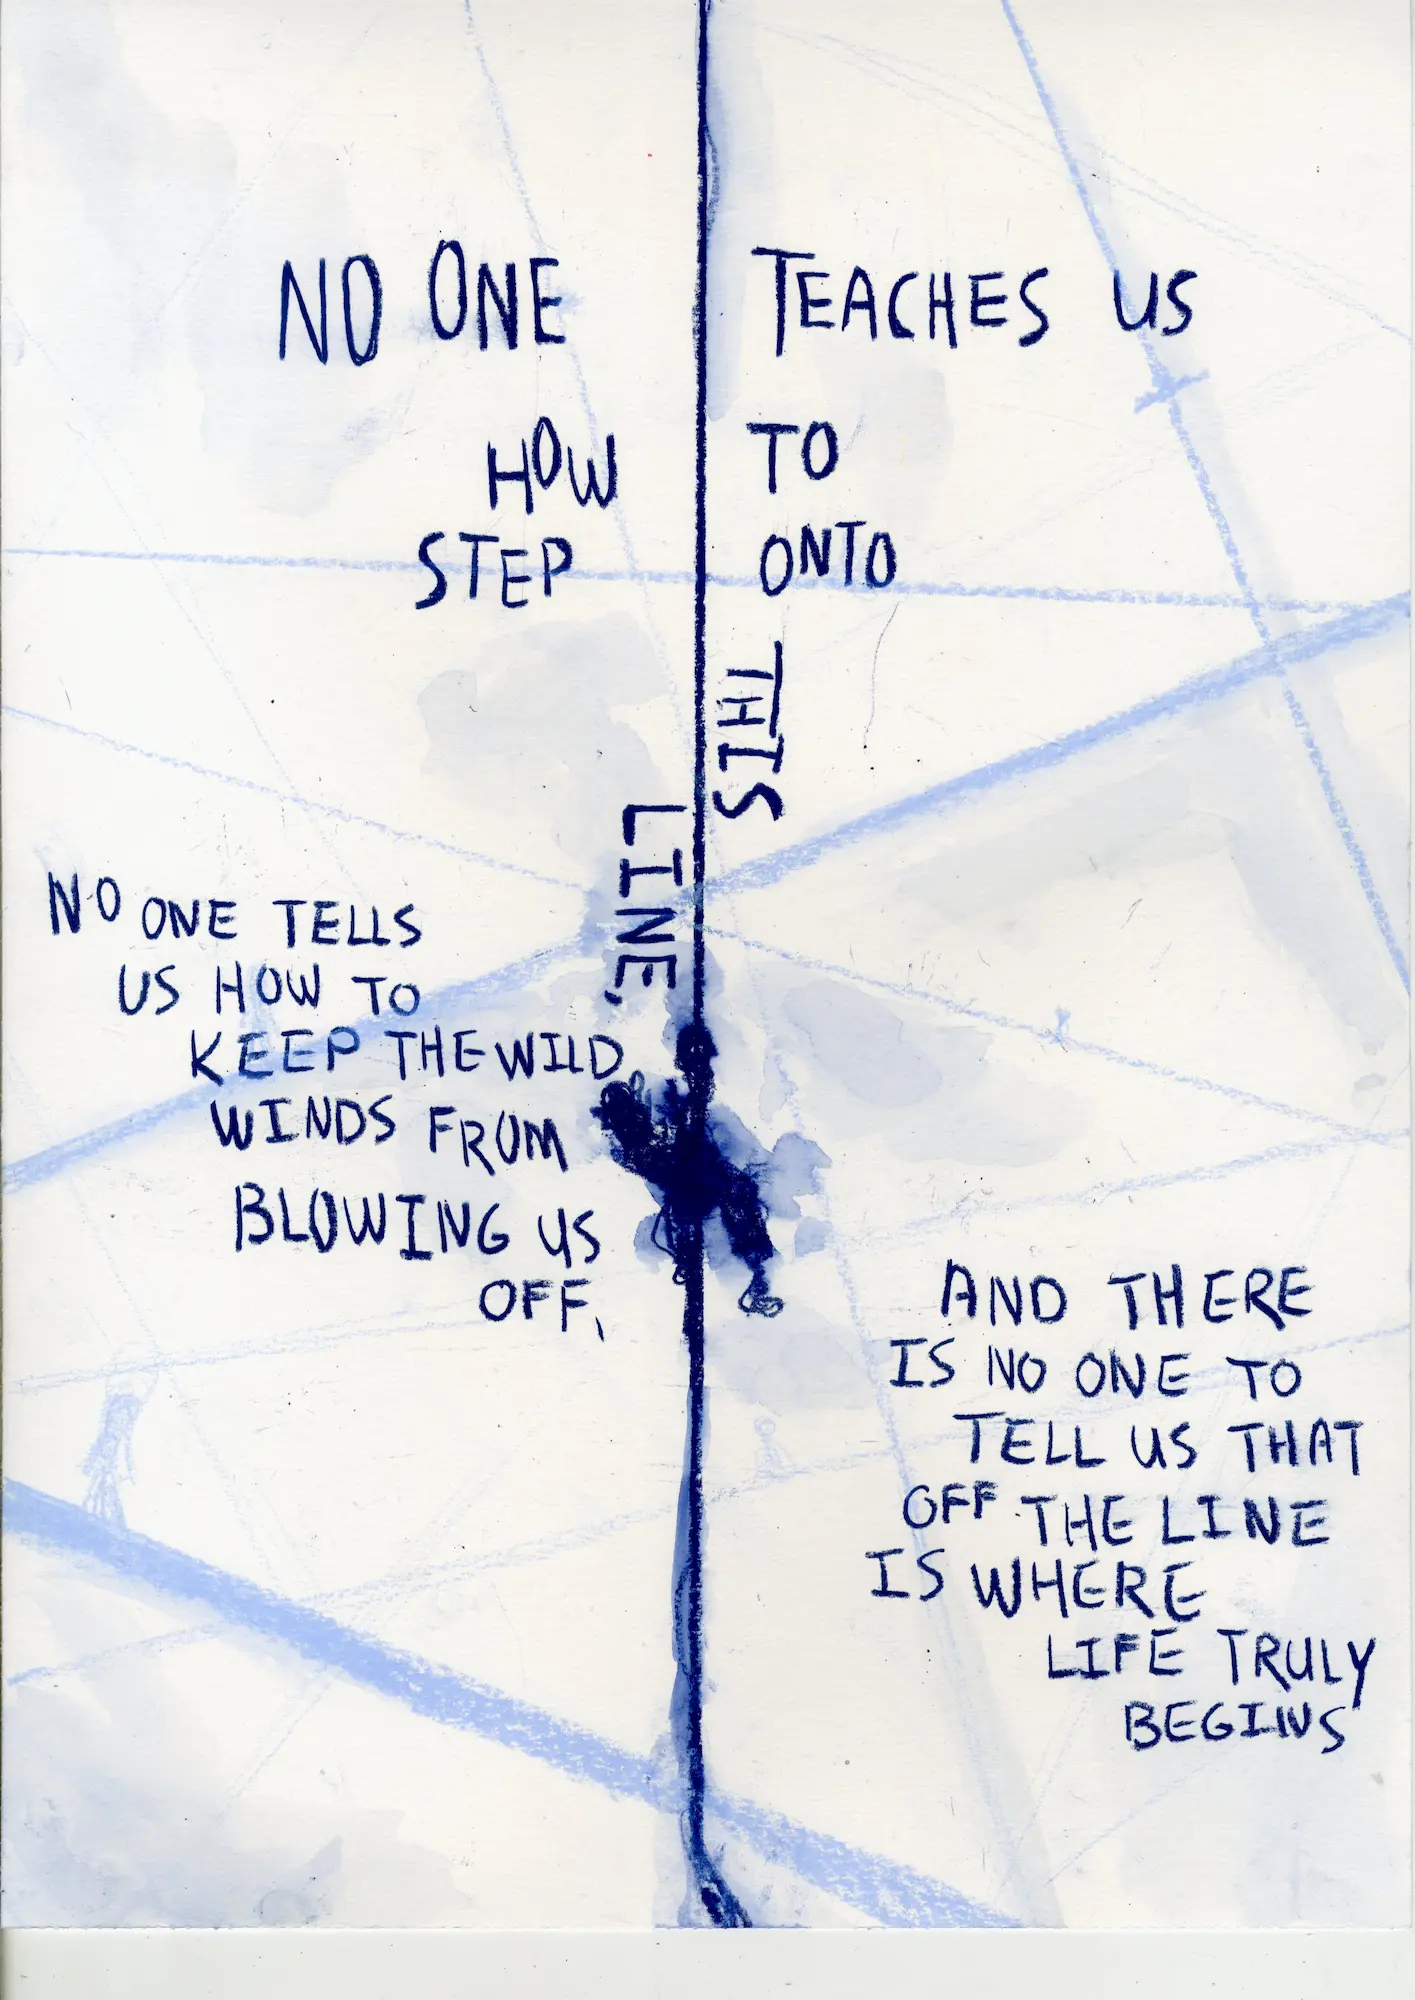 NO ONE TEACHES US
HOW TO
STEP ONTO
THIS
LINE,
NO ONE TELLS
US HOW TO
KEEP THE WILD
WINDS FROM
BLOWING US
OFF,
AND THERE
IS NO ONE TO
TELL US THAT
OFF THE LINE
IS WHERE
LIFE TRULY
BEGINS